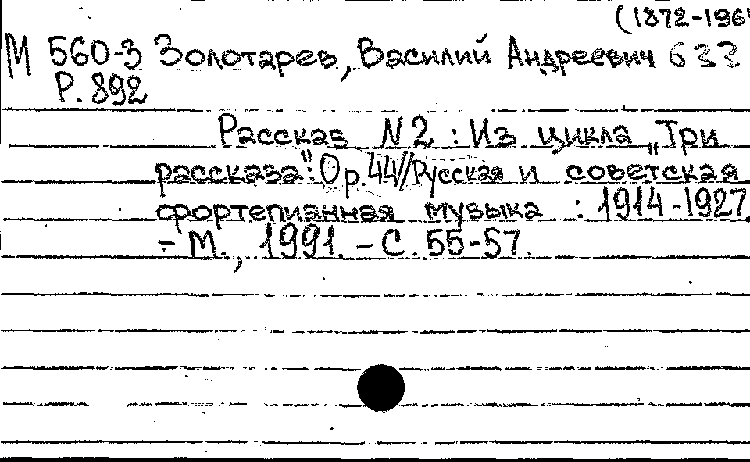 (1872-196
М 560-3 Золотарев, Василий Андреевич 633
Р. 892
Рассказ N 2 : Из цикла „Три
рассказа": Ор. 44//Русская и советская
фортепианная музыка : 1914-1927
- М., 1991. - С. 55-57.